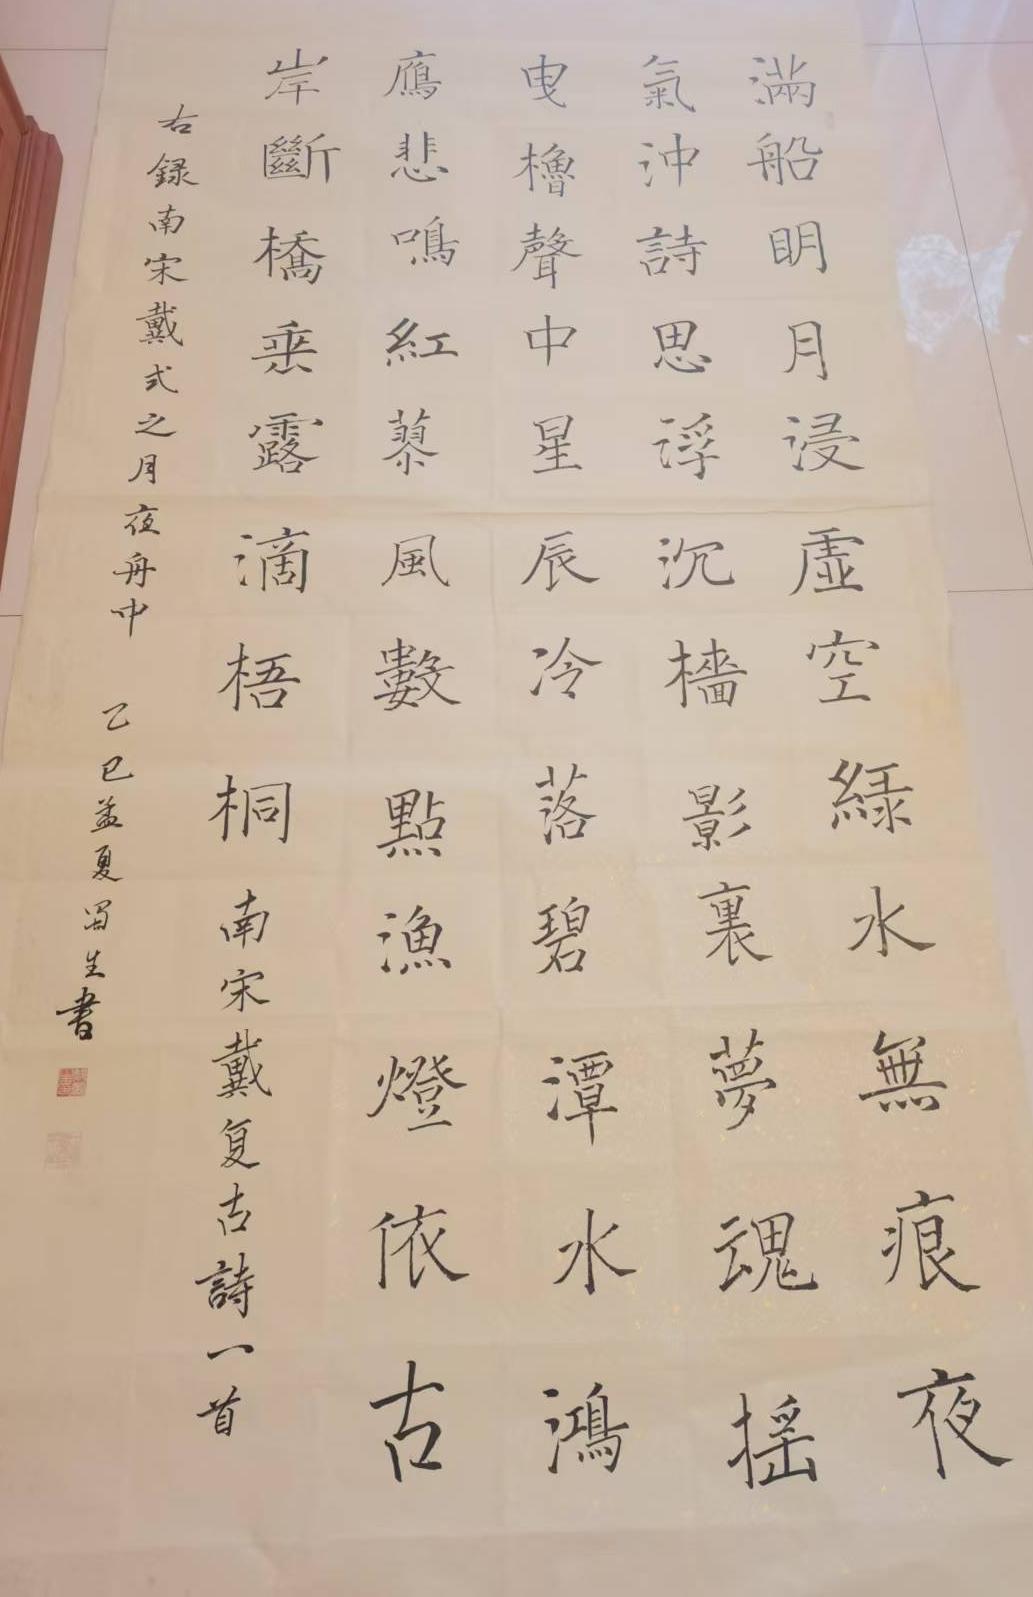 滿船明月浸虛空綠水無痕夜
氣沖詩思浮沉檣影裏夢魂搖
曳櫓聲中星辰冷落碧潭水鴻
鴈悲鳴紅蓼風數點漁燈依古
岸斷橋垂露滴梧桐
南宋戴复古詩一首
右録南宋戴式之月夜舟中
乙巳孟夏蜀生書